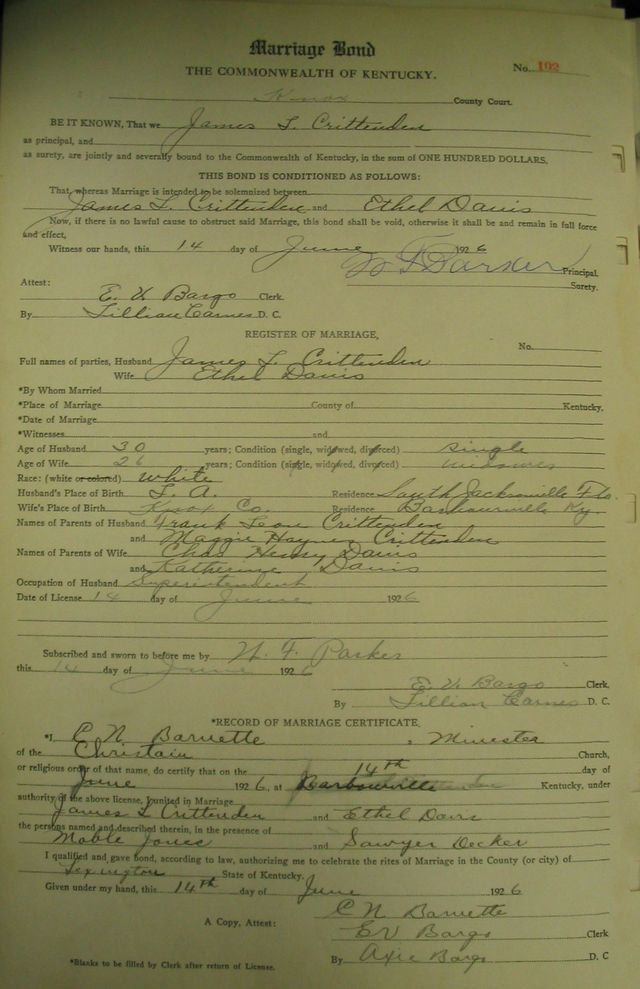 Marriage Bond
THE COMMONWEALTH OF KENTUCKY.
No. 192
Knox County Court.
BE IT KNOWN, That we James L. Crittenden
as principal, and
as surety, are jointly and severally bound to the Commonwealth of Kentucky, in the sum of ONE HUNDRED DOLLARS.
THIS BOND IS CONDITIONED AS FOLLOWS:
That, whereas Marriage is intended to be solemnized between
James L. Crittenden and Ethel Davis
Now, if there is no lawful cause to obstruct said Marriage, this bond shall be void, otherwise it shall be and remain in full force
and effect,
Witness our hands, this 14 day of June 1926
Principal.
Attest: Surety.
E. V. Bargo Clerk.
By Lillian Carnes D. C.
REGISTER OF MARRIAGE,
No.
Full names of parties, Husband James L. Crittenden
Wife Ethel Davis
*By Whom Married
*Place of Marriage County of Kentucky,
*Date of Marriage
*Witnesses and
Age of Husband 30 years; Condition (single, widowed, divorced) single
Age of Wife 26 years; Condition (single, widowed, divorced)
Race: (white or colored) white
Husband's Place of Birth Residence South Jacksonville Fla.
Wife's Place of Birth Knox Co. Residence Barbourville Ky.
Names of Parents of Husband Frank Leon Crittenden
and Maggie Haynes Crittenden
Names of Parents of Wife Chas Henry Davis
and Katherine Davis
Occupation of Husband Superintendent
Date of License 14 day of June 1926
Subscribed and sworn to before me by W. F. Parker
this 14 day of June 1926
E. V. Bargo Clerk,
By Lillian Carnes D. C.
*RECORD OF MARRIAGE CERTIFICATE.
*I, C N Barnette, Minester
of the Christain Church,
or religious order of that name, do certify that on the 14th day of
June 1926, at Barbourville Kentucky, under
authority of the above license, I united in Marriage
James L Crittenden and Ethel Davis
the persons named and described therein, in the presence of
Mable Jones and Sawyer Decker
I qualified and gave bond, according to law, authorizing me to celebrate the rites of Marriage in the County (or city) of
Lexington State of Kentucky.
Given under my hand, this 14th day of June 1926
C N Barnette
A Copy, Attest: E V Bargo Clerk
By Axie Bargo D. C
*Blanks to be filled by Clerk after return of License.